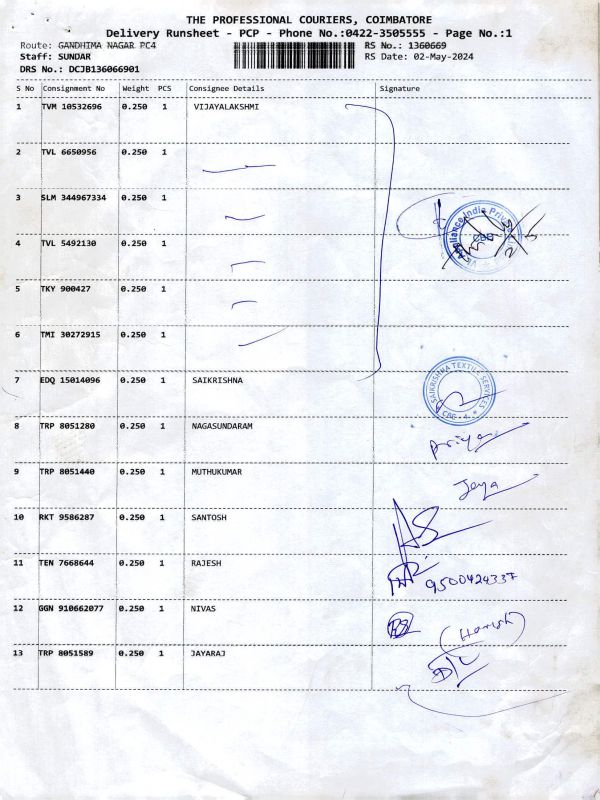 THE PROFESSIONAL COURIERS, COIMBATORE
Delivery Runsheet - PCP - Phone No.:0422-3505555 - Page No.:1
Route: GANDHIMA NAGAR PC4 RS No.: 1360669
Staff: SUNDAR RS Date: 02-May-2024
DRS No.: DCJB136066901
S No Consignment No Weight PCS Consignee Details Signature
1 TVM 10532696 0.250 1 VIJAYALAKSHMI
2 TVL 6650956 0.250 1
3 SLM 344967334 0.250 1
Appliance India
CBE
4 TVL 5492130 0.250 1
5 TKY 900427 0.250 1
6 TMI 30272915 0.250 1
7 EDQ 15014096 0.250 1 SAIKRISHNA
SAIKRISHNA TEXTILE SERVICES
CBE - 4.
8 TRP 8051280 0.250 1 NAGASUNDARAM Priya
9 TRP 8051440 0.250 1 MUTHUKUMAR Jaya
10 RKT 9586287 0.250 1 SANTOSH
11 TEN 7668644 0.250 1 RAJESH 9500424337
12 GGN 910662077 0.250 1 NIVAS (Harish)
13 TRP 8051589 0.250 1 JAYARAJ